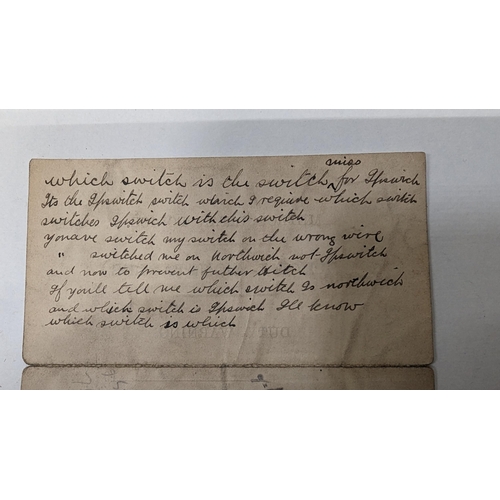 miss
which switch is the switch ^ for Ipswich
Its the Ipswitch switch which I require which switch
switches Ipswich with this switch
youave switch my switch on the wrong wire
" switched me on Northwich not Ipswitch
and now to prevent futher hitch
If youll tell me which switch Is northwich
and which switch is Ipswich Ill know
which switch is which